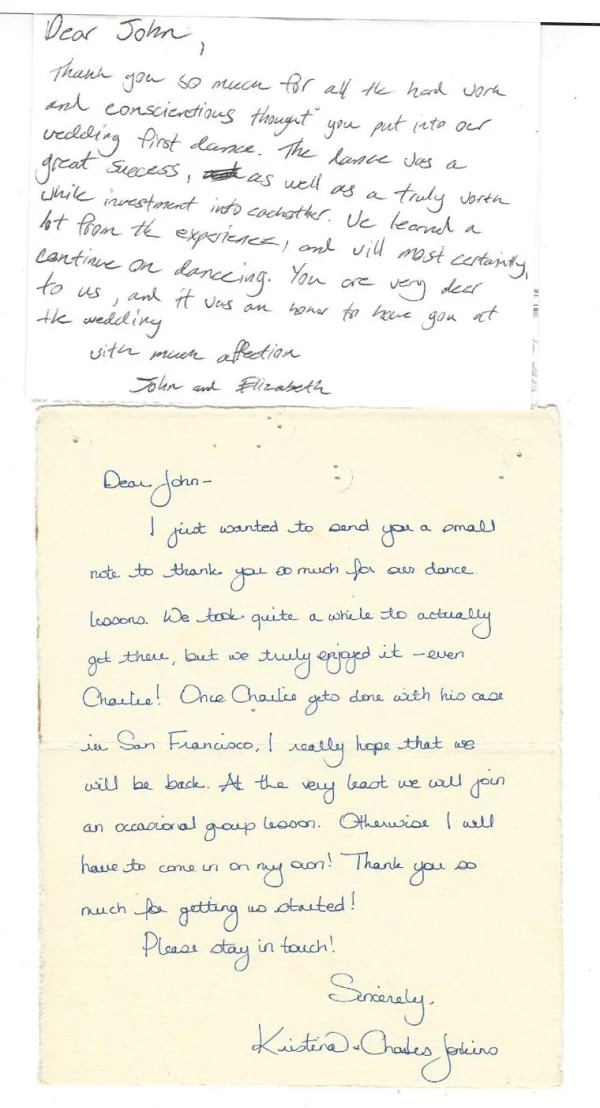 Dear John,
Thank you so much for all the hard work
and conscientious thought you put into our
wedding first dance. The dance was a
great success, as well as a truly worth
while investment into eachother. We learned a
lot from the experience, and will most certainly,
continue on danceing. You are very dear
to us, and it was an honor to have you at
the wedding
with much affection
John and Elizabeth
Dear John-
I just wanted to send you a small
note to thank you so much for our dance
lessons. We took quite a while to actually
get there, but we truly enjoyed it - even
Charlie! Once Charlie gets done with his case
in San Francisco, I really hope that we
will be back. At the very least we will join
an occasional group lesson. Otherwise I will
have to come in on my own! Thank you so
much for getting us started!
Please stay in touch!
Sincerely,
Kristina + Charles Jenkins